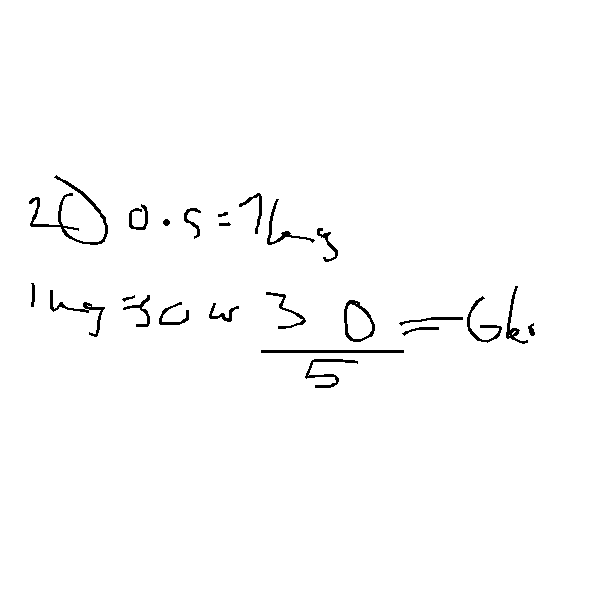 20 0.5=1kg
1kg=30kr 30/5=6kr